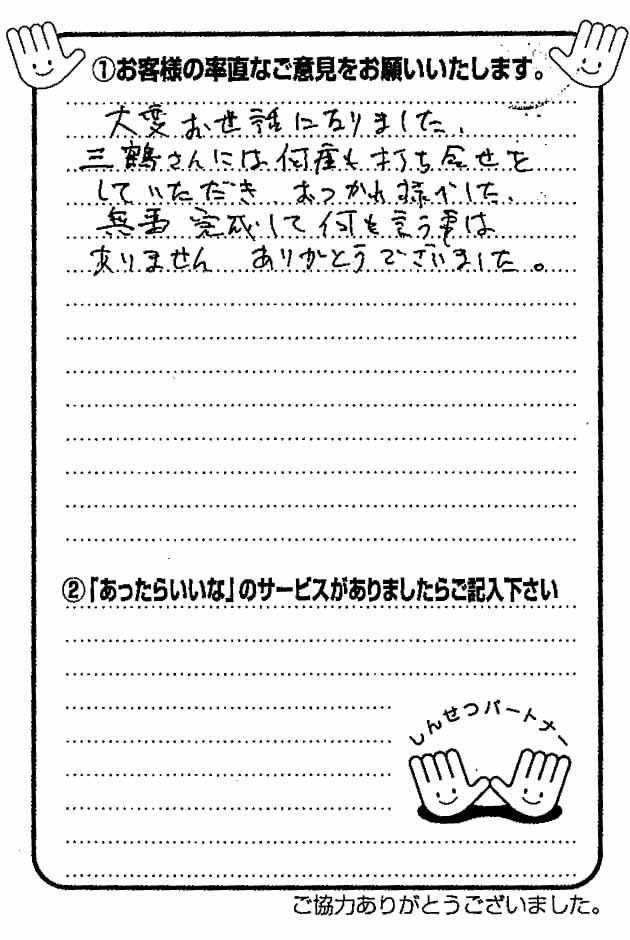 ①お客様の率直なご意見をお願いいたします。
大変お世話になりました、
三鶴さんには何度も打ち合せを
していただき おつかれ様でした、
無事 完成して何も言う事は
ありません ありがとうございました。
②「あったらいいな」のサービスがありましたらご記入下さい
しんせつパートナー
ご協力ありがとうございました。